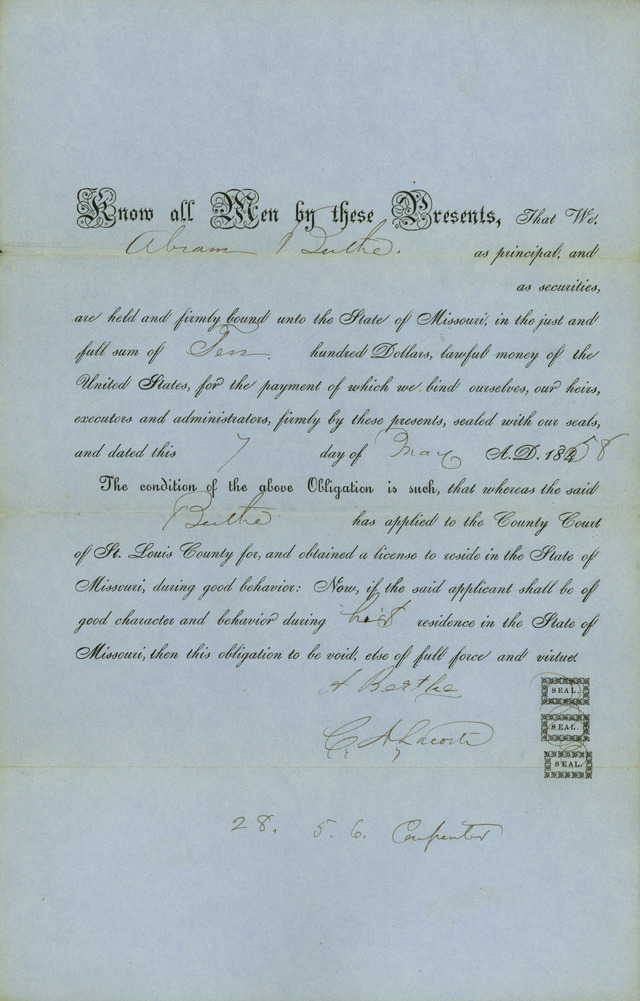 Know all Men by these Presents, That We,
Abram Berthe. as principal, and
as securities,
are held and firmly bound unto the State of Missouri, in the just and
full sum of Ten hundred Dollars, lawful money of the
United States, for the payment of which we bind ourselves, our heirs,
executors and administrators, firmly by these presents, sealed with our seals,
and dated this 7 day of May A.D. 1858
The condition of the above Obligation is such, that whereas the said
Berthe has applied to the County Court
of St. Louis County for, and obtained a license to reside in the State of
Missouri, during good behavior: Now, if the said applicant shall be of
good character and behavior during his residence in the State of
Missouri, then this obligation to be void, else of full force and virtue.
A Berthe SEAL.
C. A. Lacoste SEAL.
SEAL.
28. 5. 6. Carpenter